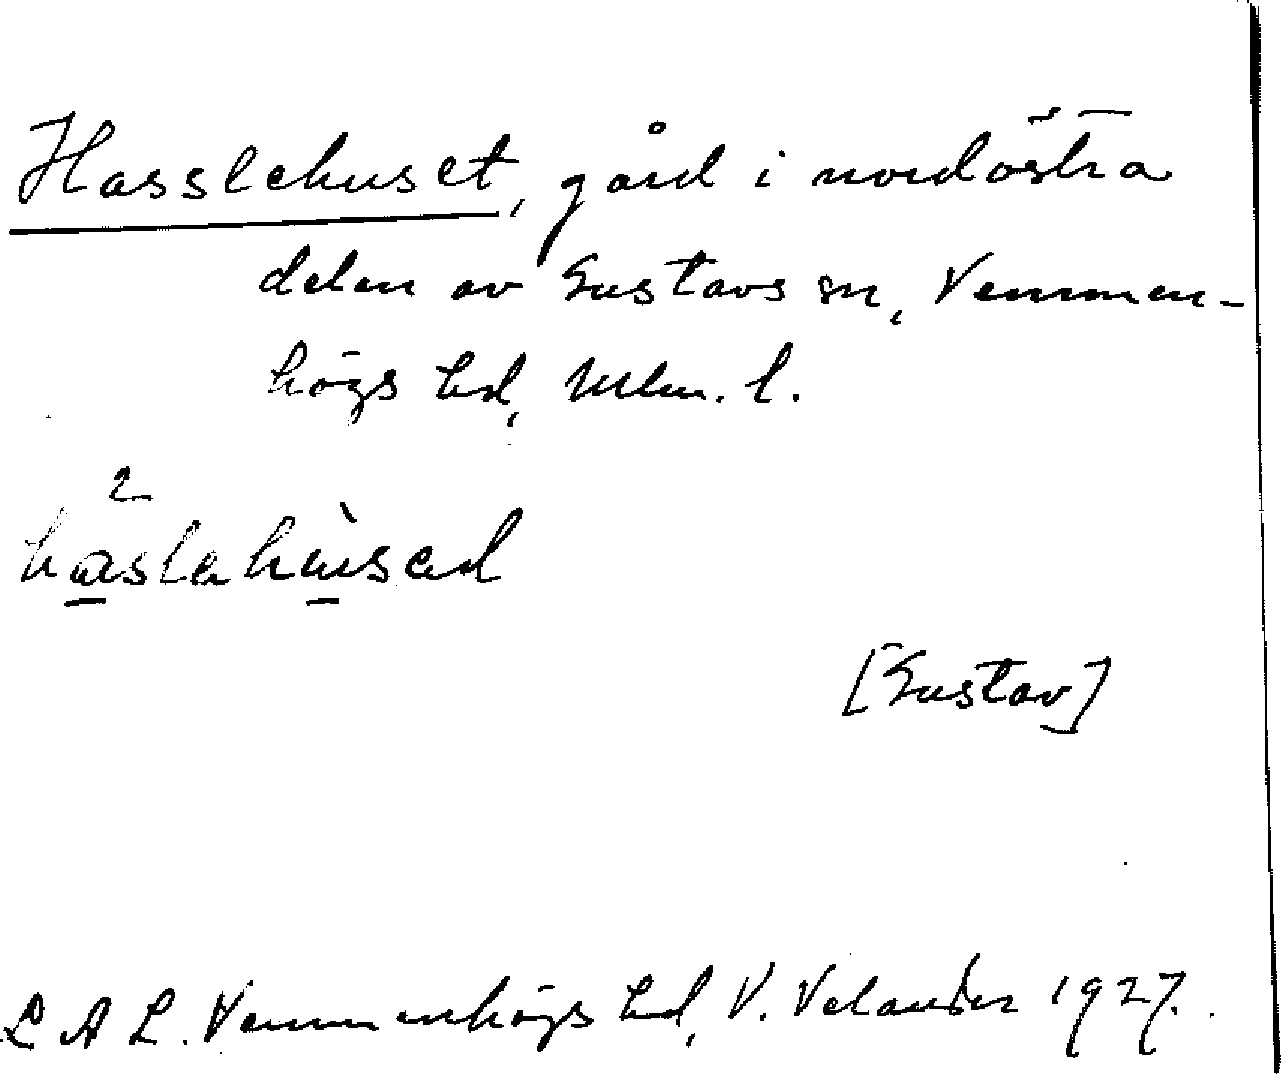 Hasslehuset, gård i nordöstra
delen av Gustavs sn, Vemmen-
högs hd, Mlm. l.
2
haslahùsed
[Gustav]
L A L. Vemmenhögs hd, V. Velander 1927.